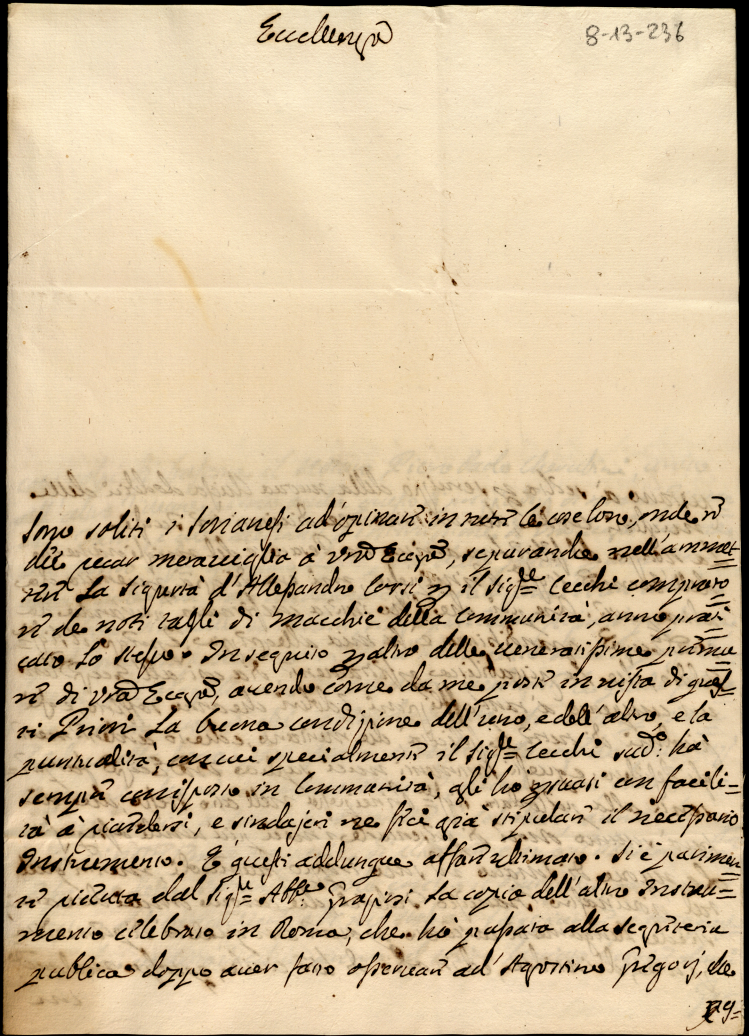 Eccellenza
8-13-236
Sono soliti i Sorianesi ad'opinare in tutte le cose loro, onde non
die recar meraviglia à Vra Eccza, se quando nell'ammet=
tere La sigurtà d'Alessandro Corsi per il Sigre Cecchi comprato
re de noti tagli di macchie della Communità, anno prati
cato Lo stesso. In seguito per altro delle veneratissime
di Vra Eccza, avendo come da me posto in vista di ques=
ti Priori La buona condizione dell'uno, e dell'altro, e la
puntualità, con cui specialmente il Sigre Cecchi sudo hà
sempre corrisposto in Communità, gli hò trovati con facili=
tà à, e fici già stipolare il necessario
Instrumento. E questi addunque affare ultimato. Si è parimen
te dal Sigre Abbe Grapini La copia dell'altro Instru=
mento celebrato in Roma, che hò passata alla segreteria
publica doppo aver fatto osservare ad'Agostino Grigorj, che